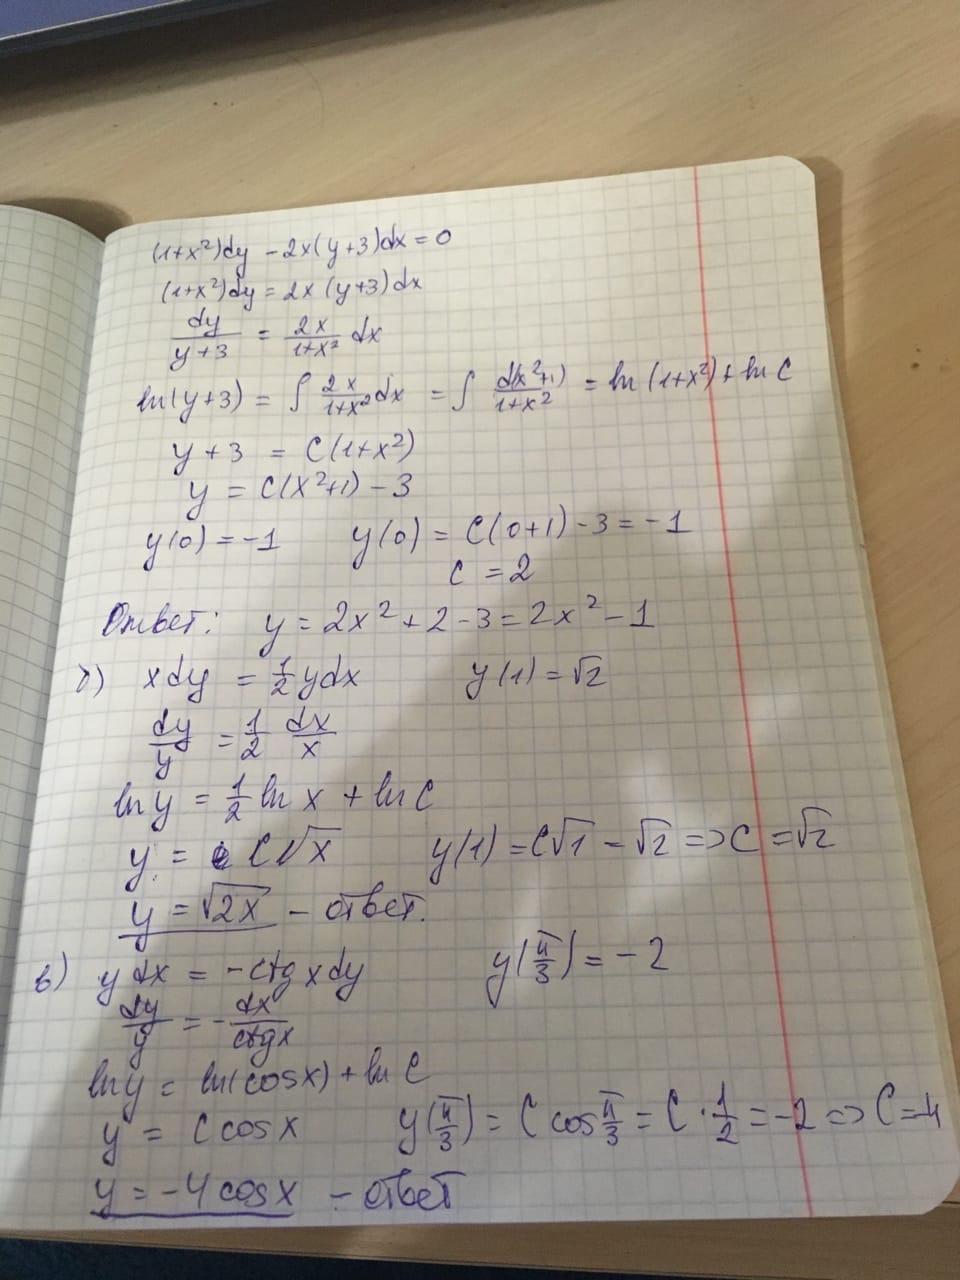 (1+x²)dy - 2x(y+3)dx = 0
(1+x²)dy = 2x (y+3)dx
dy/(y+3) = 2x/(1+x²) dx
ln(y+3) = ∫ 2x/(1+x²) dx = ∫ d(x²+1)/(1+x²) = ln(1+x²) + ln C
y + 3 = C(1+x²)
y = C(x²+1) - 3
y(0) = -1 y(0) = C(0+1) - 3 = -1
C = 2
Ответ: y = 2x² + 2 - 3 = 2x² - 1
б) xdy = 1/2 ydx y(1) = √2
dy/y = 1/2 dx/x
ln y = 1/2 ln x + ln C
y = C√x y(1) = C√1 - √2 => C = √2
y = √2x - ответ.
в) ydx = -ctg x dy y(π/3) = -2
dy/y = - dx/ctgx
ln y = ln(cosx) + ln C
y = C cosx y(π/3) = C cos π/3 = C · 1/2 = -2 => C = -4
y = -4 cosx - ответ